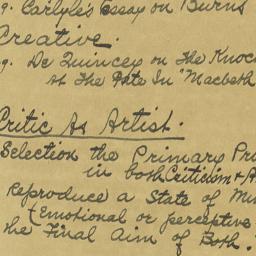 g. Carlyle's Essay on Burns
Creative.
g. De Quincey on The Knoc
at the Gate In "Macbeth
Critic As Artist.
Selection the Primary Pr
in both Criticism & A
Reproduce a State of M
(Emotional or perceptive
the Final Aim of Both.